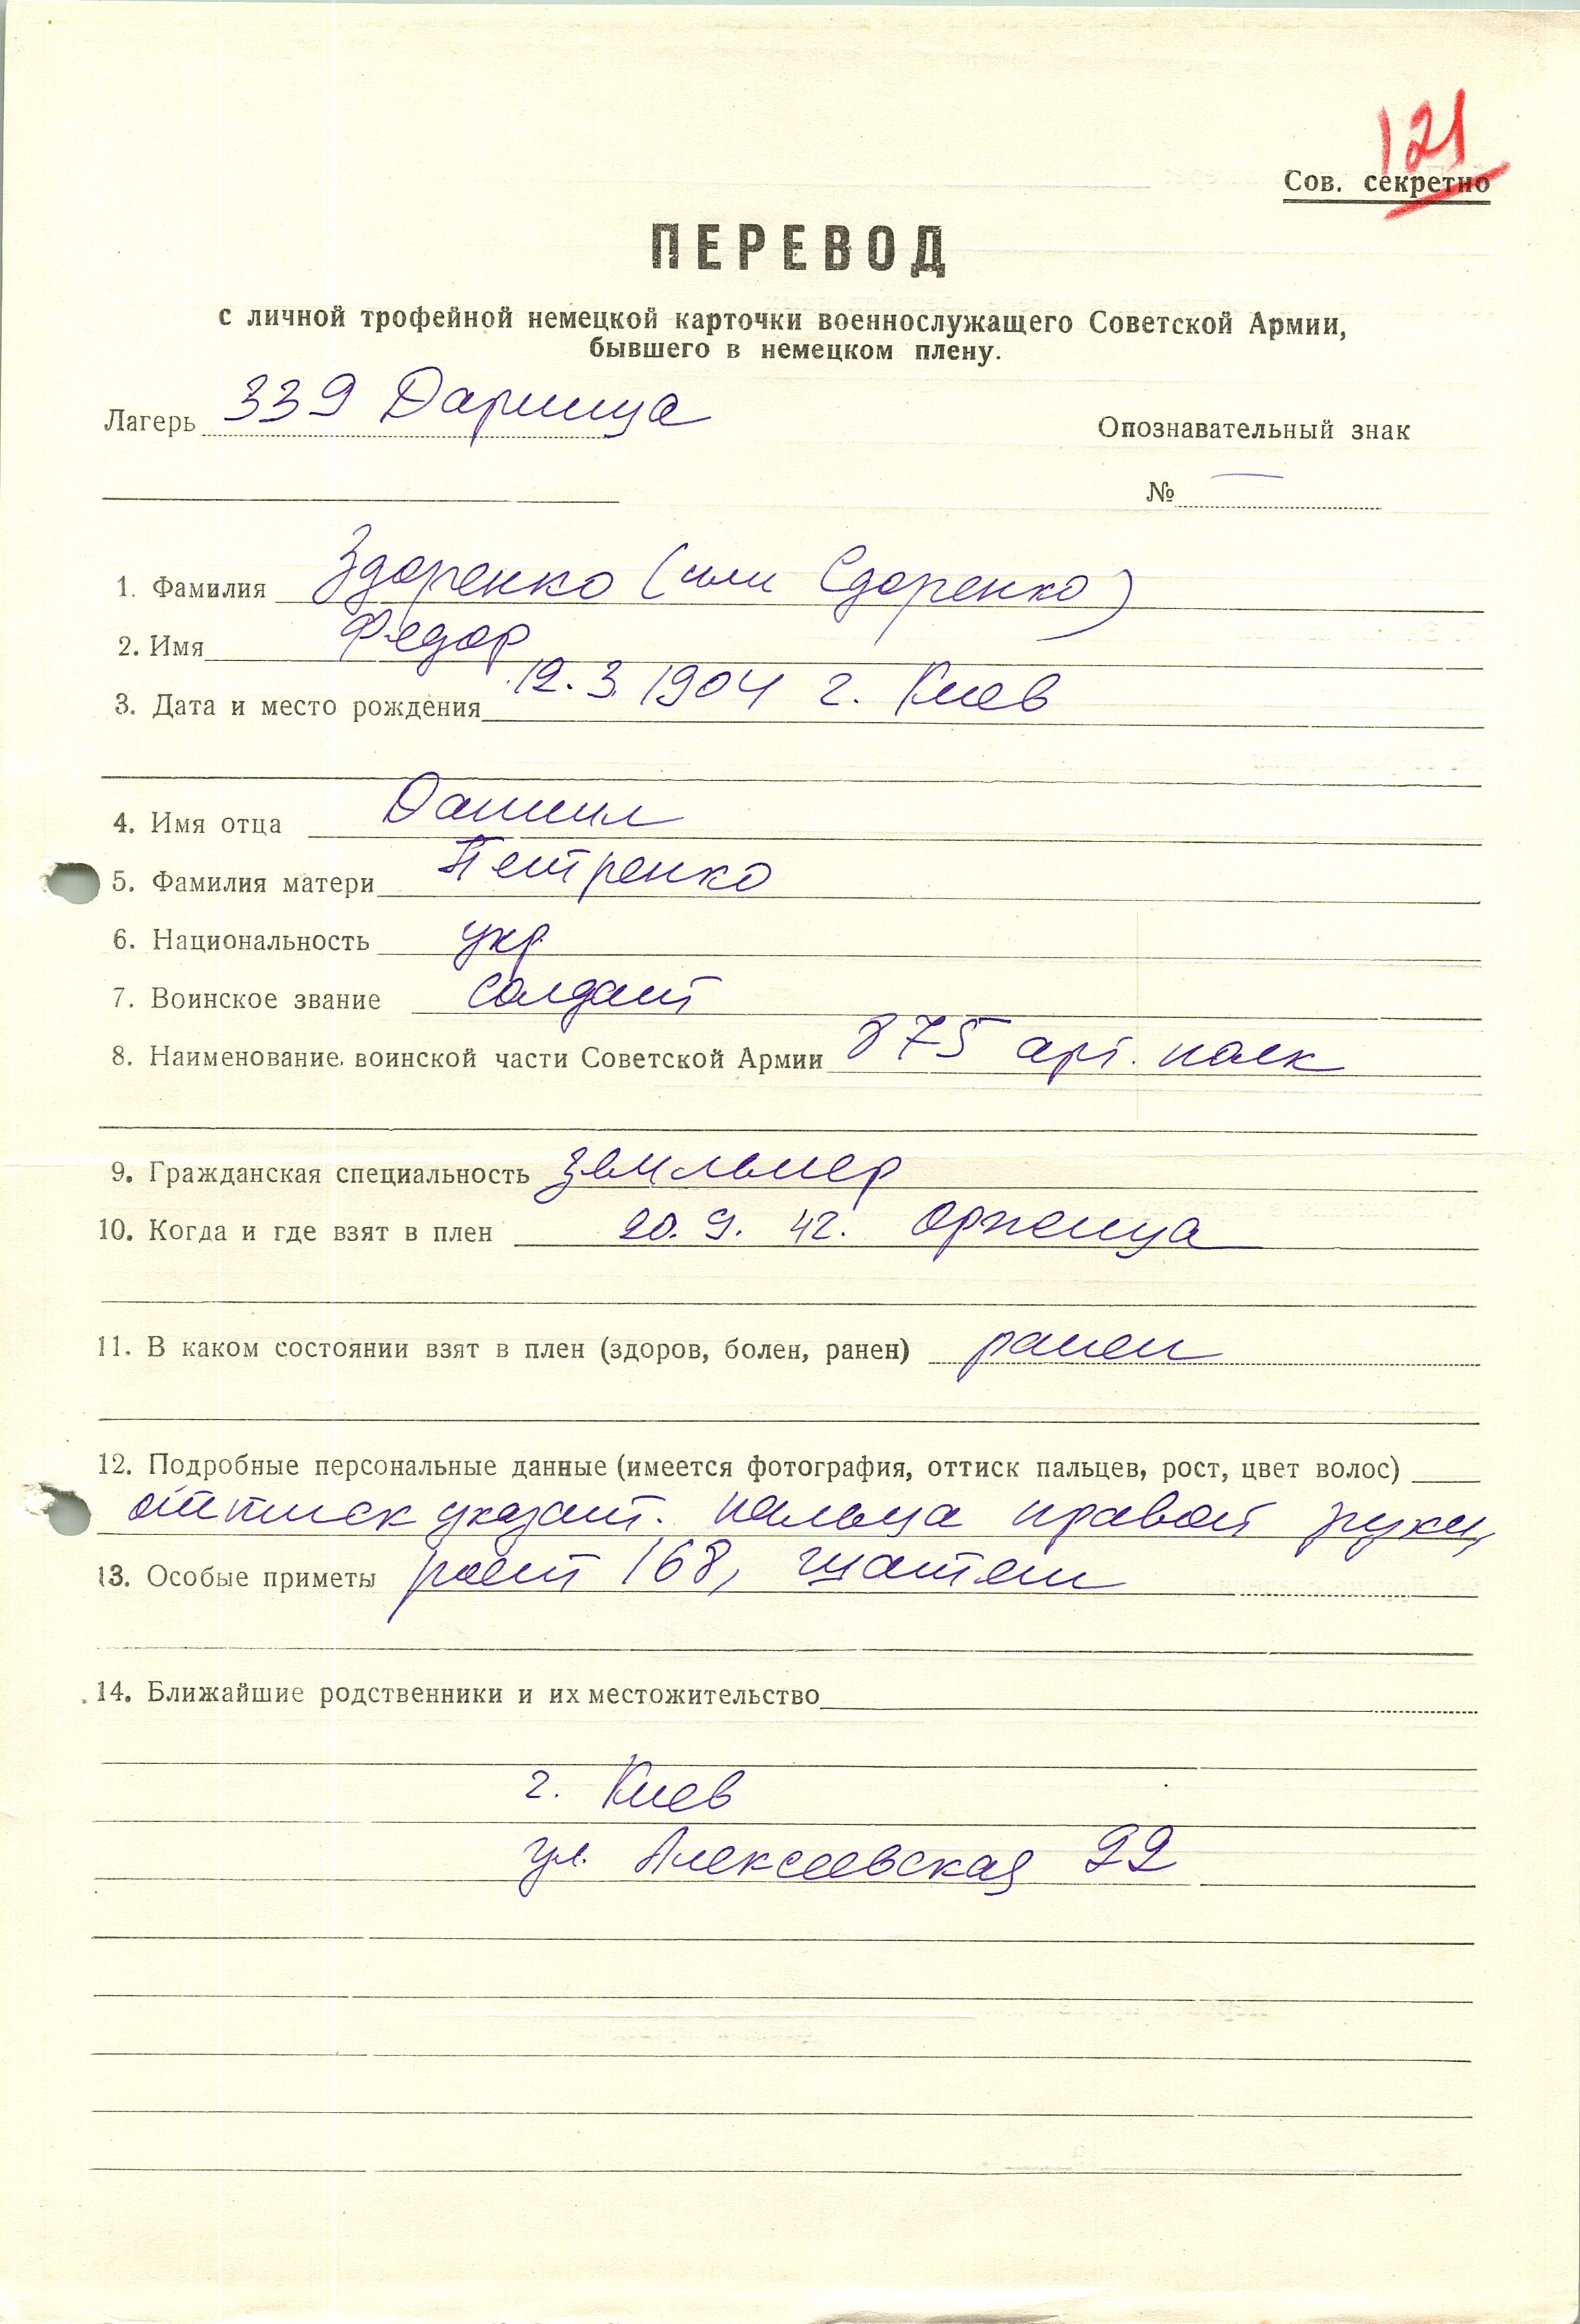 121
Сов. секретно
ПЕРЕВОД
с личной трофейной немецкой карточки военнослужащего Советской Армии,
бывшего в немецком плену.
Лагерь 339 Дарница
Опознавательный знак
№ —
1. Фамилия Здоренко (или Сдоренко)
2. Имя Федор
3. Дата и место рождения 12.3.1904 г. Киев
4. Имя отца Даниил
5. Фамилия матери Петренко
6. Национальность укр.
7. Воинское звание солдат
8. Наименование воинской части Советской Армии 875 арт. полк
9. Гражданская специальность землемер
10. Когда и где взят в плен 20.9.42. Оржица
11. В каком состоянии взят в плен (здоров, болен, ранен) ранен
12. Подробные персональные данные (имеется фотография, оттиск пальцев, рост, цвет волос)
оттиск указат. пальца правой руки,
13. Особые приметы рост 168, шатен
14. Ближайшие родственники и их местожительство
г. Киев
ул. Алексеевская 22